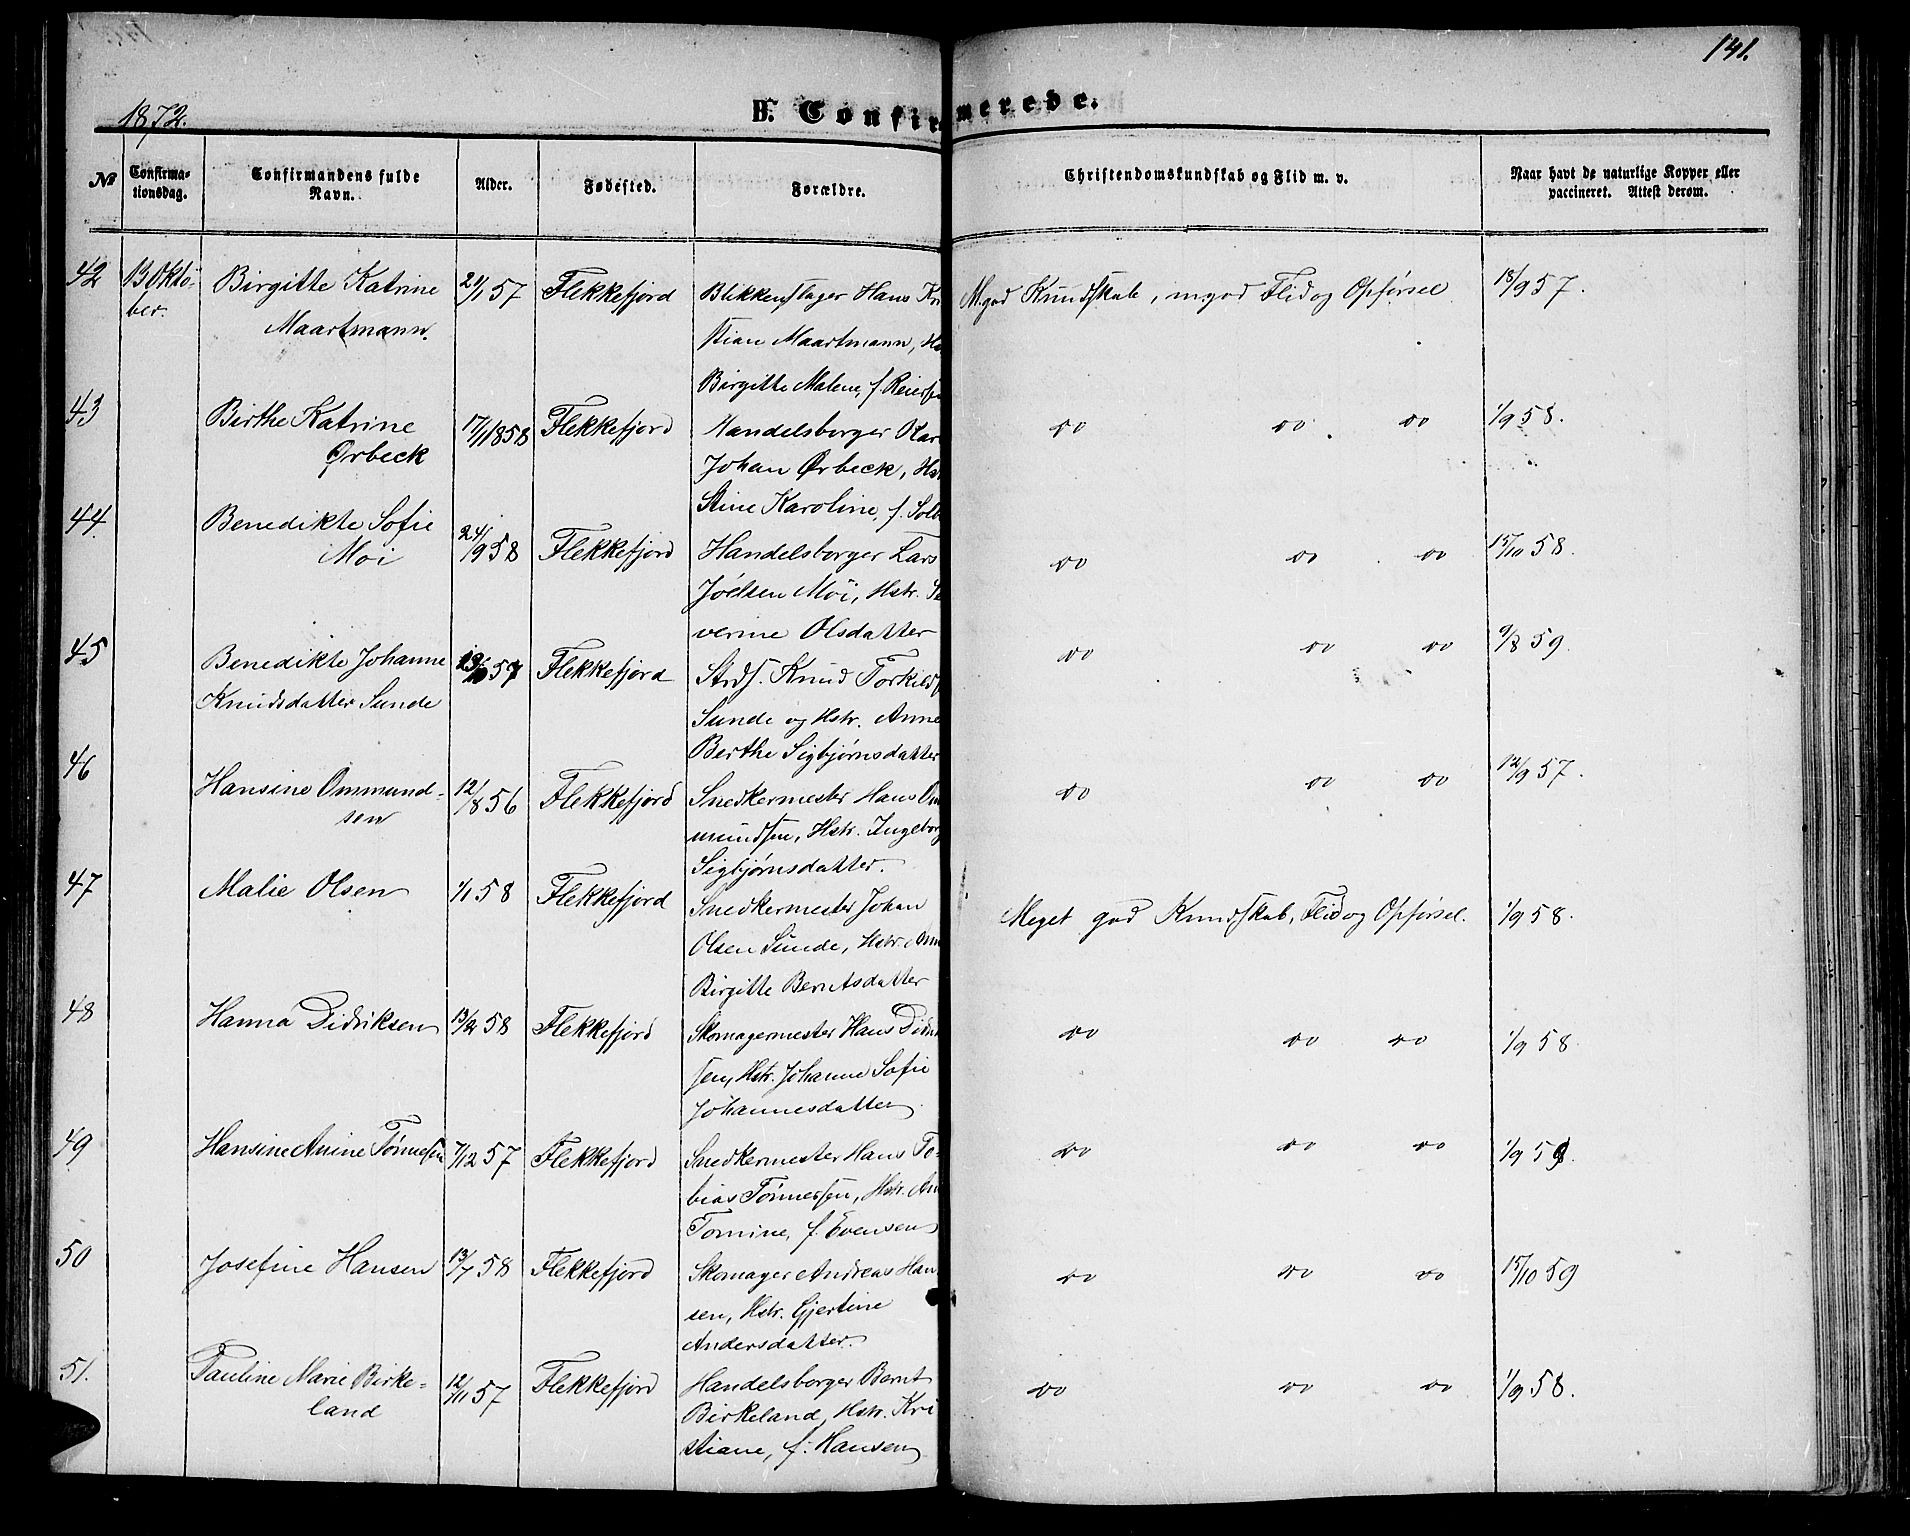 141.
1872.
B. Confirmerede.
No
Confirma-
tionsdag.
Confirmandens fulde
Navn.
Alder.
Fødested.
Forældre.
Christendomskundskab og Flid m. v.
Naar havt de naturlige Kopper eller
vaccineret. Attest derom.
42 13 Okto- Birgitte Katrine 21/1 57 Flekkefjord Blikkenslager Hans Kri M.god Kundskab, m.god Flid og Opførsel 18/9 57.
ber. Maartmann. stian Maartmann, Hs
Birgitte Malene, f. Reiersen
43 Birthe Katrine 17/1 1858 Flekkefjord Handelsborger Kar do do do 1/9 58.
Ørbeck Johan Ørbeck, Hst
Stine Karoline, f. Solb
44. Benedikte Sofie 24/9 58 Flekkefjord Handelsborger Lars do do do 15/10 58.
Moi Joelsen Moi, Hstr. Se
verine Olsdatter
45 Benedikte Johanne 57 Flekkefjord Strds. Knud Torkilds do do do 9/8 59.
Knudsdatter Sunde Sunde og Hstr. Anne
Berthe Sigbjørnsdatter
46 Hansine Ommund- 12/8 56 Flekkefjord Snedkermester Hans Om do do do 12/9 57.
sen mundsen, Hstr. Ingeborg
Sigbjørnsdatter.
47 Malie Olsen 1/1 58 Flekkefjord Snedkermester Johan Meget god Kundskab, Flid og Opførsel. 1/9 58.
Olsen Sunde, Hstr. Ann
Birgitte Berntsdatter
48 Hanna Didriksen 13/2 58 Flekkefjord Skomagermester Hans Didrik do do do 1/9 58.
sen, Hstr. Johanne Sofie
Johannesdatter
49 Hansine Anine Tønnesen 7/12 57 Flekkefjord Snedkermester Hans To- do do do 1/9 59.
bias Tønnessen, Hstr. An
Tomine, f. Evensen
50 Josefine Hansen 13/7 58 Flekkefjord Skomager Andreas Han do do do 15/10 59
sen, Hstr. Gjertine
Andersdatter.
51. Pauline Marie Birke- 12/11 57 Flekkefjord Handelsborger Bernt do do do 1/9 58.
land Birkeland, Hstr. Kri
stiane, f. Hansen